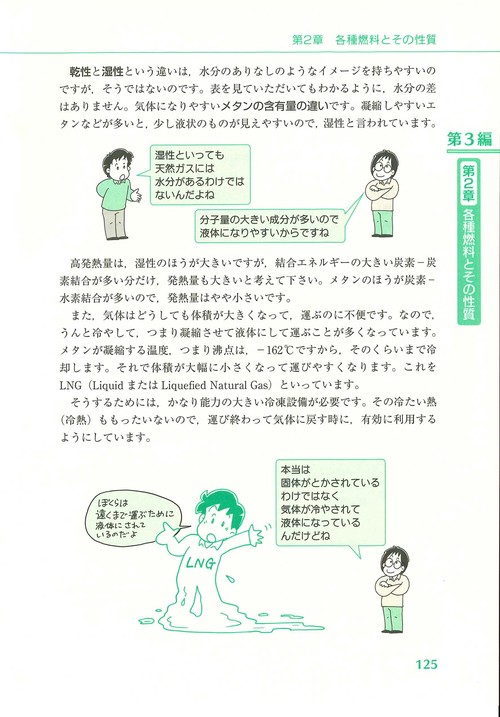 第2章 各種燃料とその性質
乾性と湿性という違いは，水分のありなしのようなイメージを持ちやすいの
ですが，そうではないのです。表を見ていただいてもわかるように，水分の差
はありません。気体になりやすいメタンの含有量の違いです。凝縮しやすいエ
タンなどが多いと，少し液状のものが見えやすいので，湿性と言われています。
湿性といっても
天然ガスには
水分があるわけでは
ないんだよね
分子量の大きい成分が多いので
液体になりやすいからですね
高発熱量は，湿性のほうが大きいですが，結合エネルギーの大きい炭素－炭
素結合が多い分だけ，発熱量も大きいと考えて下さい。メタンのほうが炭素－
水素結合が多いので，発熱量はやや小さいです。
また，気体はどうしても体積が大きくなって，運ぶのに不便です。なので，
うんと冷やして，つまり凝縮させて液体にして運ぶことが多くなっています。
メタンが凝縮する温度，つまり沸点は，－162℃ですから，そのくらいまで冷
却します。それで体積が大幅に小さくなって運びやすくなります。これを
LNG（Liquid または Liquefied Natural Gas）といっています。
そうするためには，かなり能力の大きい冷凍設備が必要です。その冷たい熱
（冷熱）ももったいないので，運び終わって気体に戻す時に，有効に利用する
ようにしています。
本当は
固体がとかされている
わけではなく
気体が冷やされて
液体になっている
んだけどね
ぼくらは
遠くまで運ぶために
液体にされて
いるのだよ
LNG
第3編
第2章 各種燃料とその性質
125